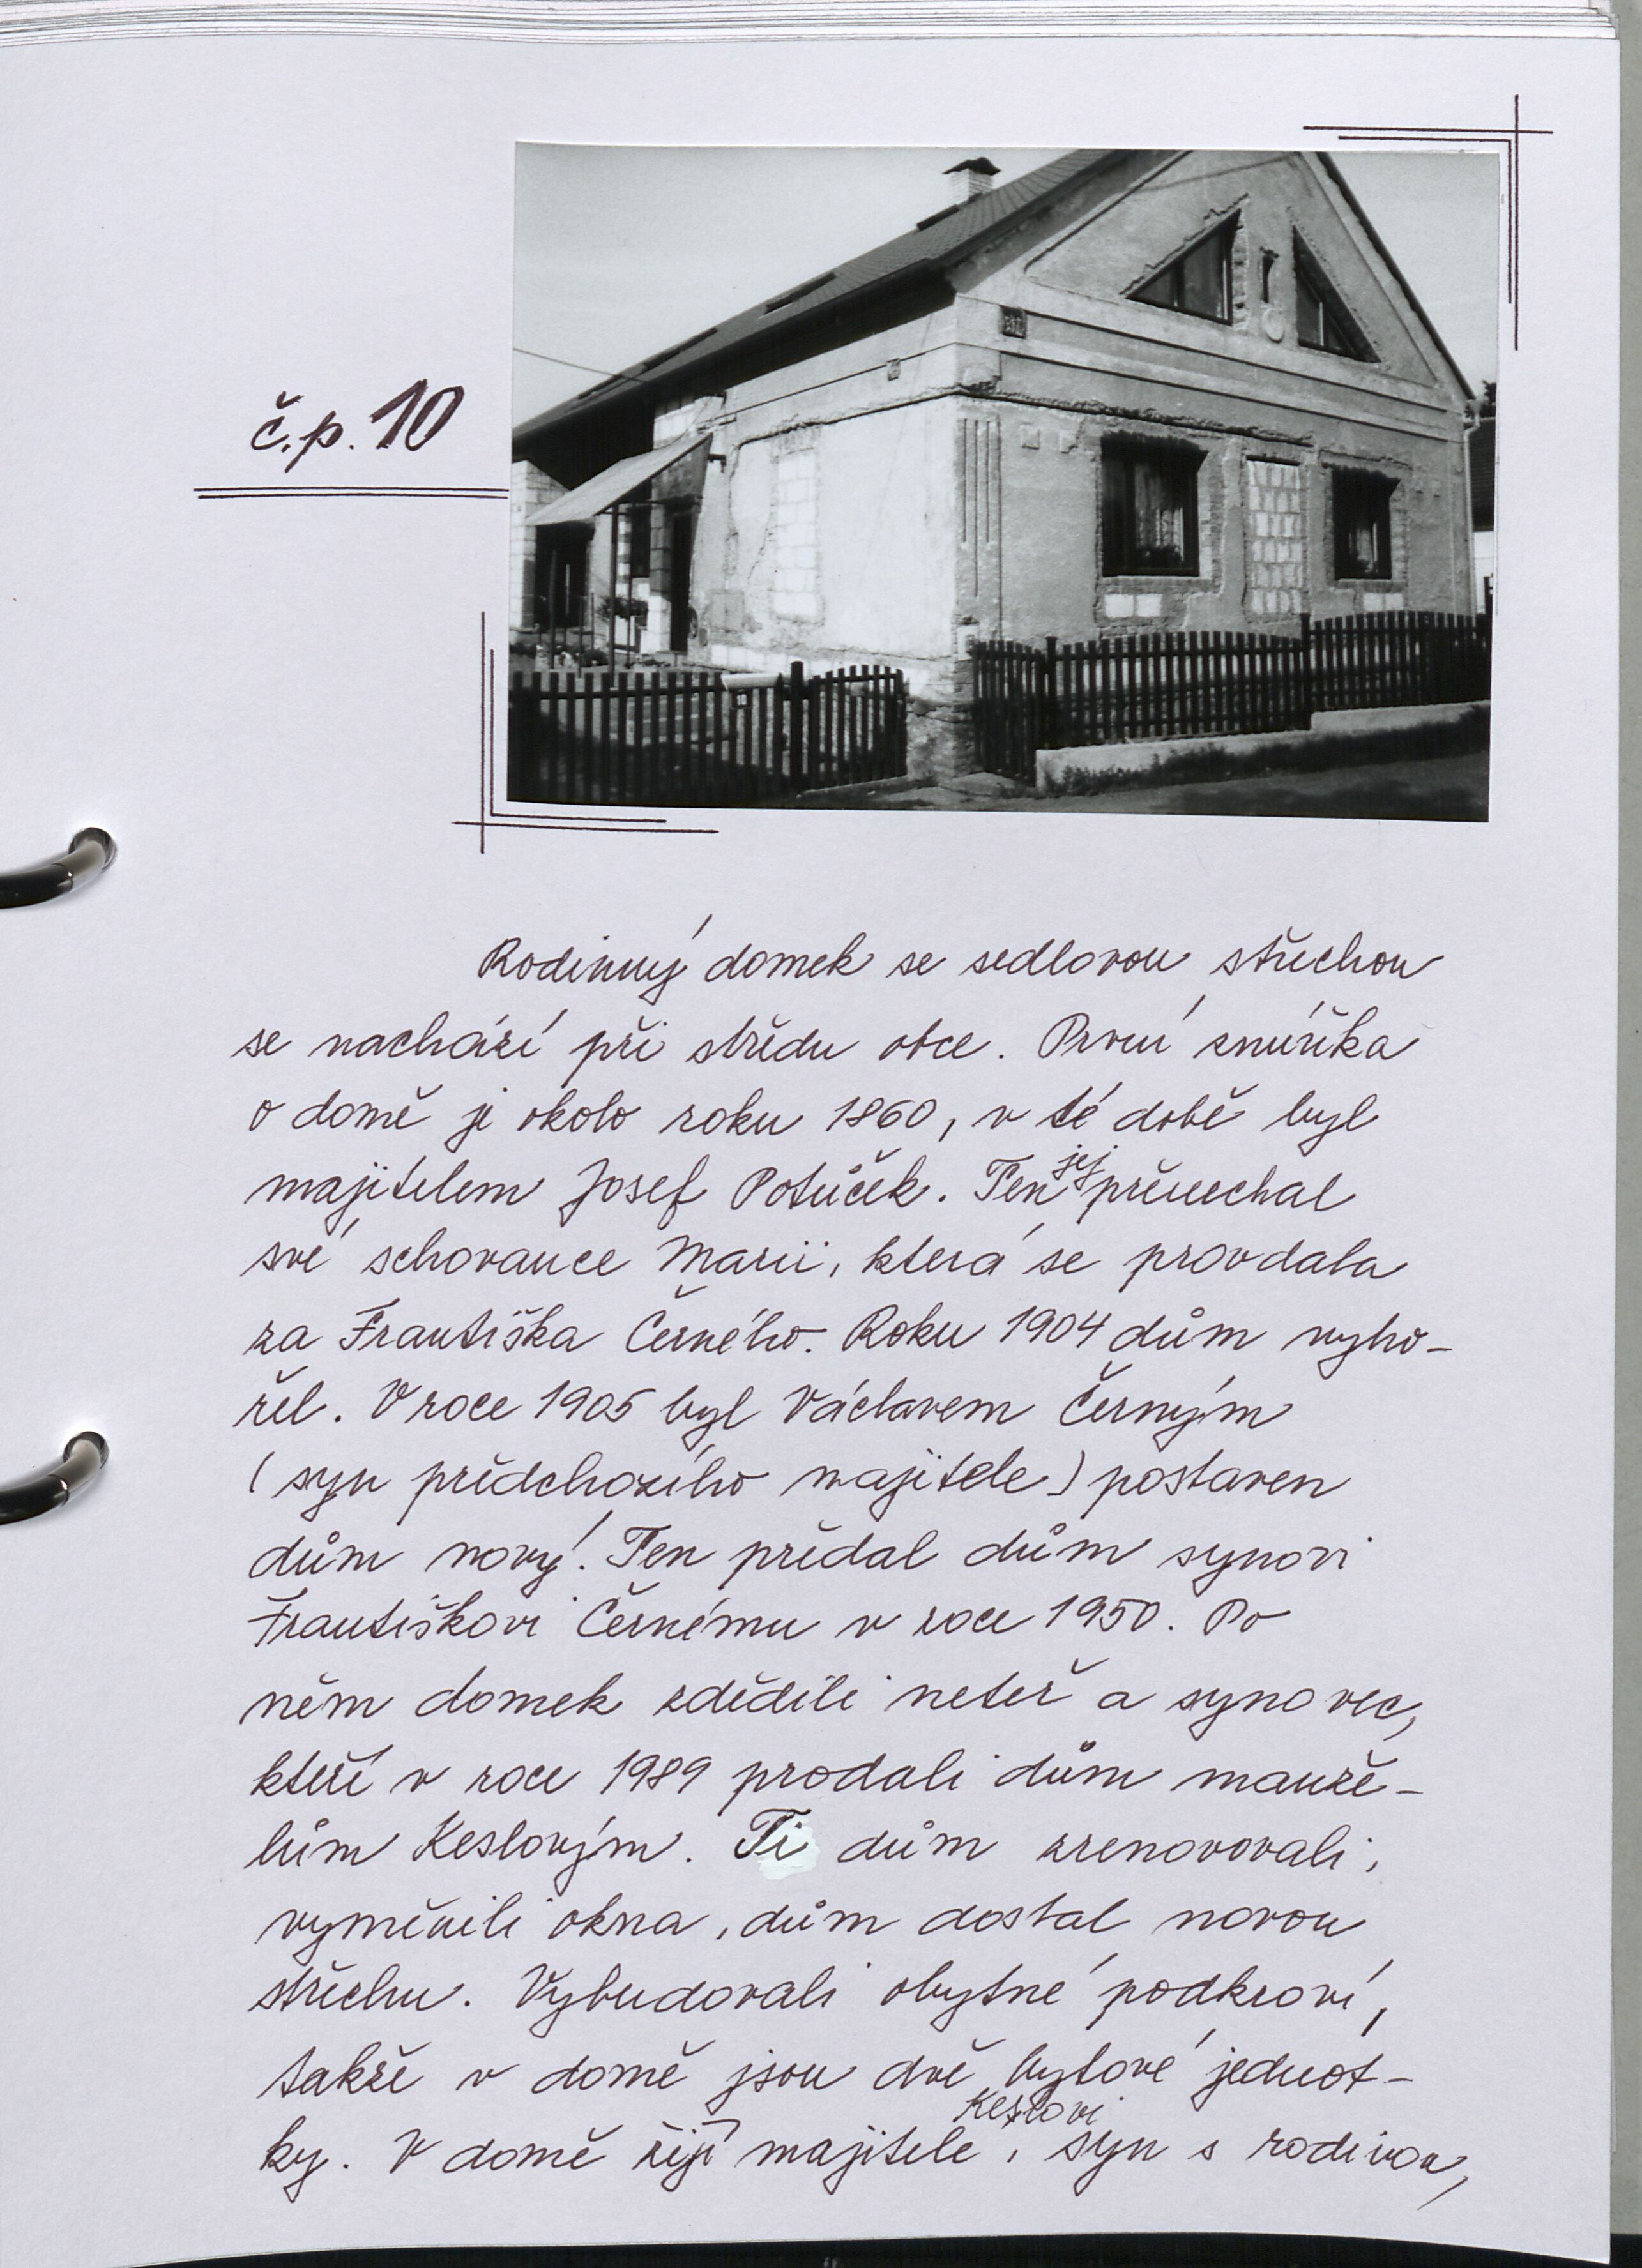 č.p. 10
Rodinný domek se sedlovou střechou
se nachází při středu obce. První zmíňka
o domě je okolo roku 1860, v té době byl
majitelem Josef Potůček. Ten jej přenechal
své schovance Marii, která se provdala
za Františka Černého. Roku 1904 dům vyho-
řel. V roce 1905 byl Václavem Černým
(syn předchozího majitele) postaven
dům nový. Ten předal dům synovi
Františkovi Černému v roce 1950. Po
něm domek zdědili neteř a synovec,
kteří v roce 1989 prodali dům manže-
lům Keslovým. Ti dům zrenovovali,
vyměnili okna, dům dostal novou
střechu. Vybudovali obytné podkroví,
takže v domě jsou dvě bytové jednot-
ky. V domě žijí majitele Keslovi, syn s rodinou,